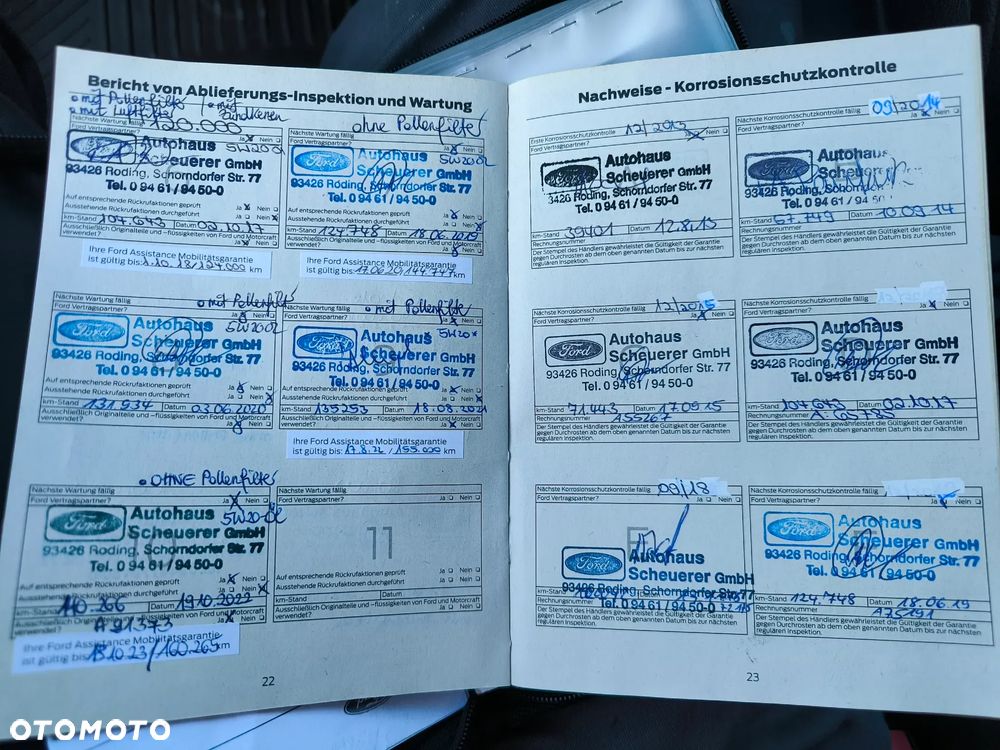 Bericht von Ablieferungs-Inspektion und Wartung
• mit Pollenfilter / • mit
• mit Luftfilter Zündkerzen
Nächste Wartung fällig 120.000
Ford Vertragspartner? Ja Nein
5W20
Ford
Autohaus
Scheuerer GmbH
93426 Roding, Schorndorfer Str. 77
Tel. 0 94 61 / 94 50-0
Auf entsprechende Rückrufaktionen geprüft Ja Nein
Ausstehende Rückrufaktionen durchgeführt Ja Nein
km-Stand 107.643 Datum 02.10.17
Ausschließlich Originalteile und –flüssigkeiten von Ford und Motorcraft
verwendet? Ja Nein
Ihre Ford Assistance Mobilitätsgarantie
ist gültig bis: 1.10.18/127.000 km
ohne Pollenfilter
Nächste Wartung fällig
Ford Vertragspartner? Ja Nein
5W20 ÖL
Ford
Autohaus
Scheuerer GmbH
93426 Roding, Schorndorfer Str. 77
Tel. 0 94 61 / 94 50-0
Auf entsprechende Rückrufaktionen geprüft Ja Nein
Ausstehende Rückrufaktionen durchgeführt Ja Nein
km-Stand 124.748 Datum 18.06.2019
Ausschließlich Originalteile und –flüssigkeiten von Ford und Motorcraft
verwendet? Ja Nein
Ihre Ford Assistance Mobilitätsgarantie
ist gültig bis: 17.06.20 144.747 km
• mit Pollenfilter
Nächste Wartung fällig
Ford Vertragspartner? Ja Nein
5W20 ÖL
Ford
Autohaus
Scheuerer GmbH
93426 Roding, Schorndorfer Str. 77
Tel. 0 94 61 / 94 50-0
Auf entsprechende Rückrufaktionen geprüft Ja Nein
Ausstehende Rückrufaktionen durchgeführt Ja Nein
km-Stand Datum 03.06.2020
Ausschließlich Originalteile und –flüssigkeiten von Ford und Motorcraft
verwendet? Ja Nein
• mit Pollenfilter
Nächste Wartung fällig
Ford Vertragspartner? Ja Nein
5W20
Ford
Autohaus
Scheuerer GmbH
93426 Roding, Schorndorfer Str. 77
Tel. 0 94 61 / 94 50-0
Auf entsprechende Rückrufaktionen geprüft Ja Nein
Ausstehende Rückrufaktionen durchgeführt Ja Nein
km-Stand 135253 Datum 18.08.2021
Ausschließlich Originalteile und –flüssigkeiten von Ford und Motorcraft
verwendet? Ja Nein
Ihre Ford Assistance Mobilitätsgarantie
ist gültig bis: 17.8.22 / 155.000 km
• OHNE Pollenfilter
Nächste Wartung fällig
Ford Vertragspartner? Ja Nein
5W20-ÖL
Ford
Autohaus
Scheuerer GmbH
93426 Roding, Schorndorfer Str. 77
Tel. 0 94 61 / 94 50-0
Auf entsprechende Rückrufaktionen geprüft Ja Nein
Ausstehende Rückrufaktionen durchgeführt Ja Nein
km-Stand 140.266 Datum 19.10.2022
Ausschließlich Originalteile und –flüssigkeiten von Ford und Motorcraft
verwendet? A91373 Ja Nein
Ihre Ford Assistance Mobilitätsgarantie
ist gültig bis: 18.10.23/160.265 km
Nächste Wartung fällig
Ford Vertragspartner? Ja Nein
11
Auf entsprechende Rückrufaktionen geprüft Ja Nein
Ausstehende Rückrufaktionen durchgeführt Ja Nein
km-Stand Datum
Ausschließlich Originalteile und –flüssigkeiten von Ford und Motorcraft
verwendet? Ja Nein
22
Nachweise - Korrosionsschutzkontrolle
Erste Korrosionsschutzkontrolle 12/2013
Ford Vertragspartner? Ja Nein
Ford
Autohaus
Scheuerer GmbH
3426 Roding, Schorndorfer Str. 77
Tel. 0 94 61 / 94 50-0
km-Stand 39401 Datum 12.8.13
Rechnungsnummer
Der Stempel des Händlers gewährleistet die Gültigkeit der Garantie
gegen Durchrosten ab dem oben genannten Datum bis zur nächsten
regulären Inspektion.
Nächste Korrosionsschutzkontrolle fällig 09/2014
Ford Vertragspartner? Ja Nein
Ford
Autohaus
Scheuerer
93426 Roding, Schorndor
Tel. 0 94 61 / 94 50-0
km-Stand 67.749 Datum 10.09.14
Rechnungsnummer
Der Stempel des Händlers gewährleistet die Gültigkeit der Garantie
gegen Durchrosten ab dem oben genannten Datum bis zur nächsten
regulären Inspektion.
Nächste Korrosionsschutzkontrolle fällig 12/2015
Ford Vertragspartner? Ja Nein
Ford
Autohaus
Scheuerer GmbH
93426 Roding, Schorndorfer Str. 77
Tel. 0 94 61 / 94 50-0
km-Stand 71.443 Datum 17.09.15
Rechnungsnummer 155767
Der Stempel des Händlers gewährleistet die Gültigkeit der Garantie
gegen Durchrosten ab dem oben genannten Datum bis zur nächsten
regulären Inspektion.
Nächste Korrosionsschutzkontrolle fällig
Ford Vertragspartner? Ja Nein
Ford
Autohaus
Scheuerer GmbH
93426 Roding, Schorndorfer Str. 77
Tel. 0 94 61 / 94 50-0
km-Stand 107643 Datum 02.10.17
Rechnungsnummer
Der Stempel des Händlers gewährleistet die Gültigkeit der Garantie
gegen Durchrosten ab dem oben genannten Datum bis zur nächsten
regulären Inspektion.
Nächste Korrosionsschutzkontrolle fällig 08/18
Ford Vertragspartner? Ja Nein
Ford
Autohaus
Scheuerer GmbH
93426 Roding, Schorndorfer Str. 77
Tel. 0 94 61 / 94 50-0
km-Stand
Rechnungsnummer
Der Stempel des Händlers gewährleistet die Gültigkeit der Garantie
gegen Durchrosten ab dem oben genannten Datum bis zur nächsten
regulären Inspektion.
Nächste Korrosionsschutzkontrolle fällig
Ford Vertragspartner? Ja Nein
Ford
Autohaus
Scheuerer GmbH
93426 Roding, Schorndorfer Str. 77
Tel. 0 94 61 / 94 50-0
km-Stand 124.748 Datum 18.06.19
Rechnungsnummer
Der Stempel des Händlers gewährleistet die Gültigkeit der Garantie
gegen Durchrosten ab dem oben genannten Datum bis zur nächsten
regulären Inspektion.
23
OTOMOTO